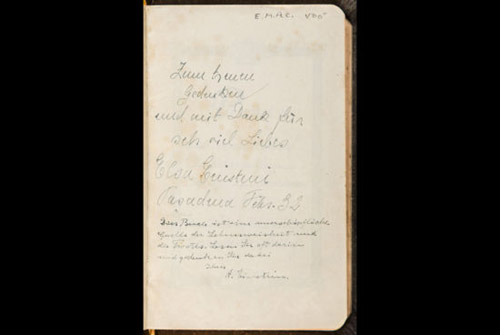 Zum treuen
Gedenken
und mit Dank für
sehr viel Liebes
Elsa Einstein
Pasadena Febr. 32
Dies Buch ist eine unerschöpfliche
Quelle der Lebensweisheit und
des Trostes. Lesen Sie oft darin
und gedenken Sie dabei
A. Einstein.